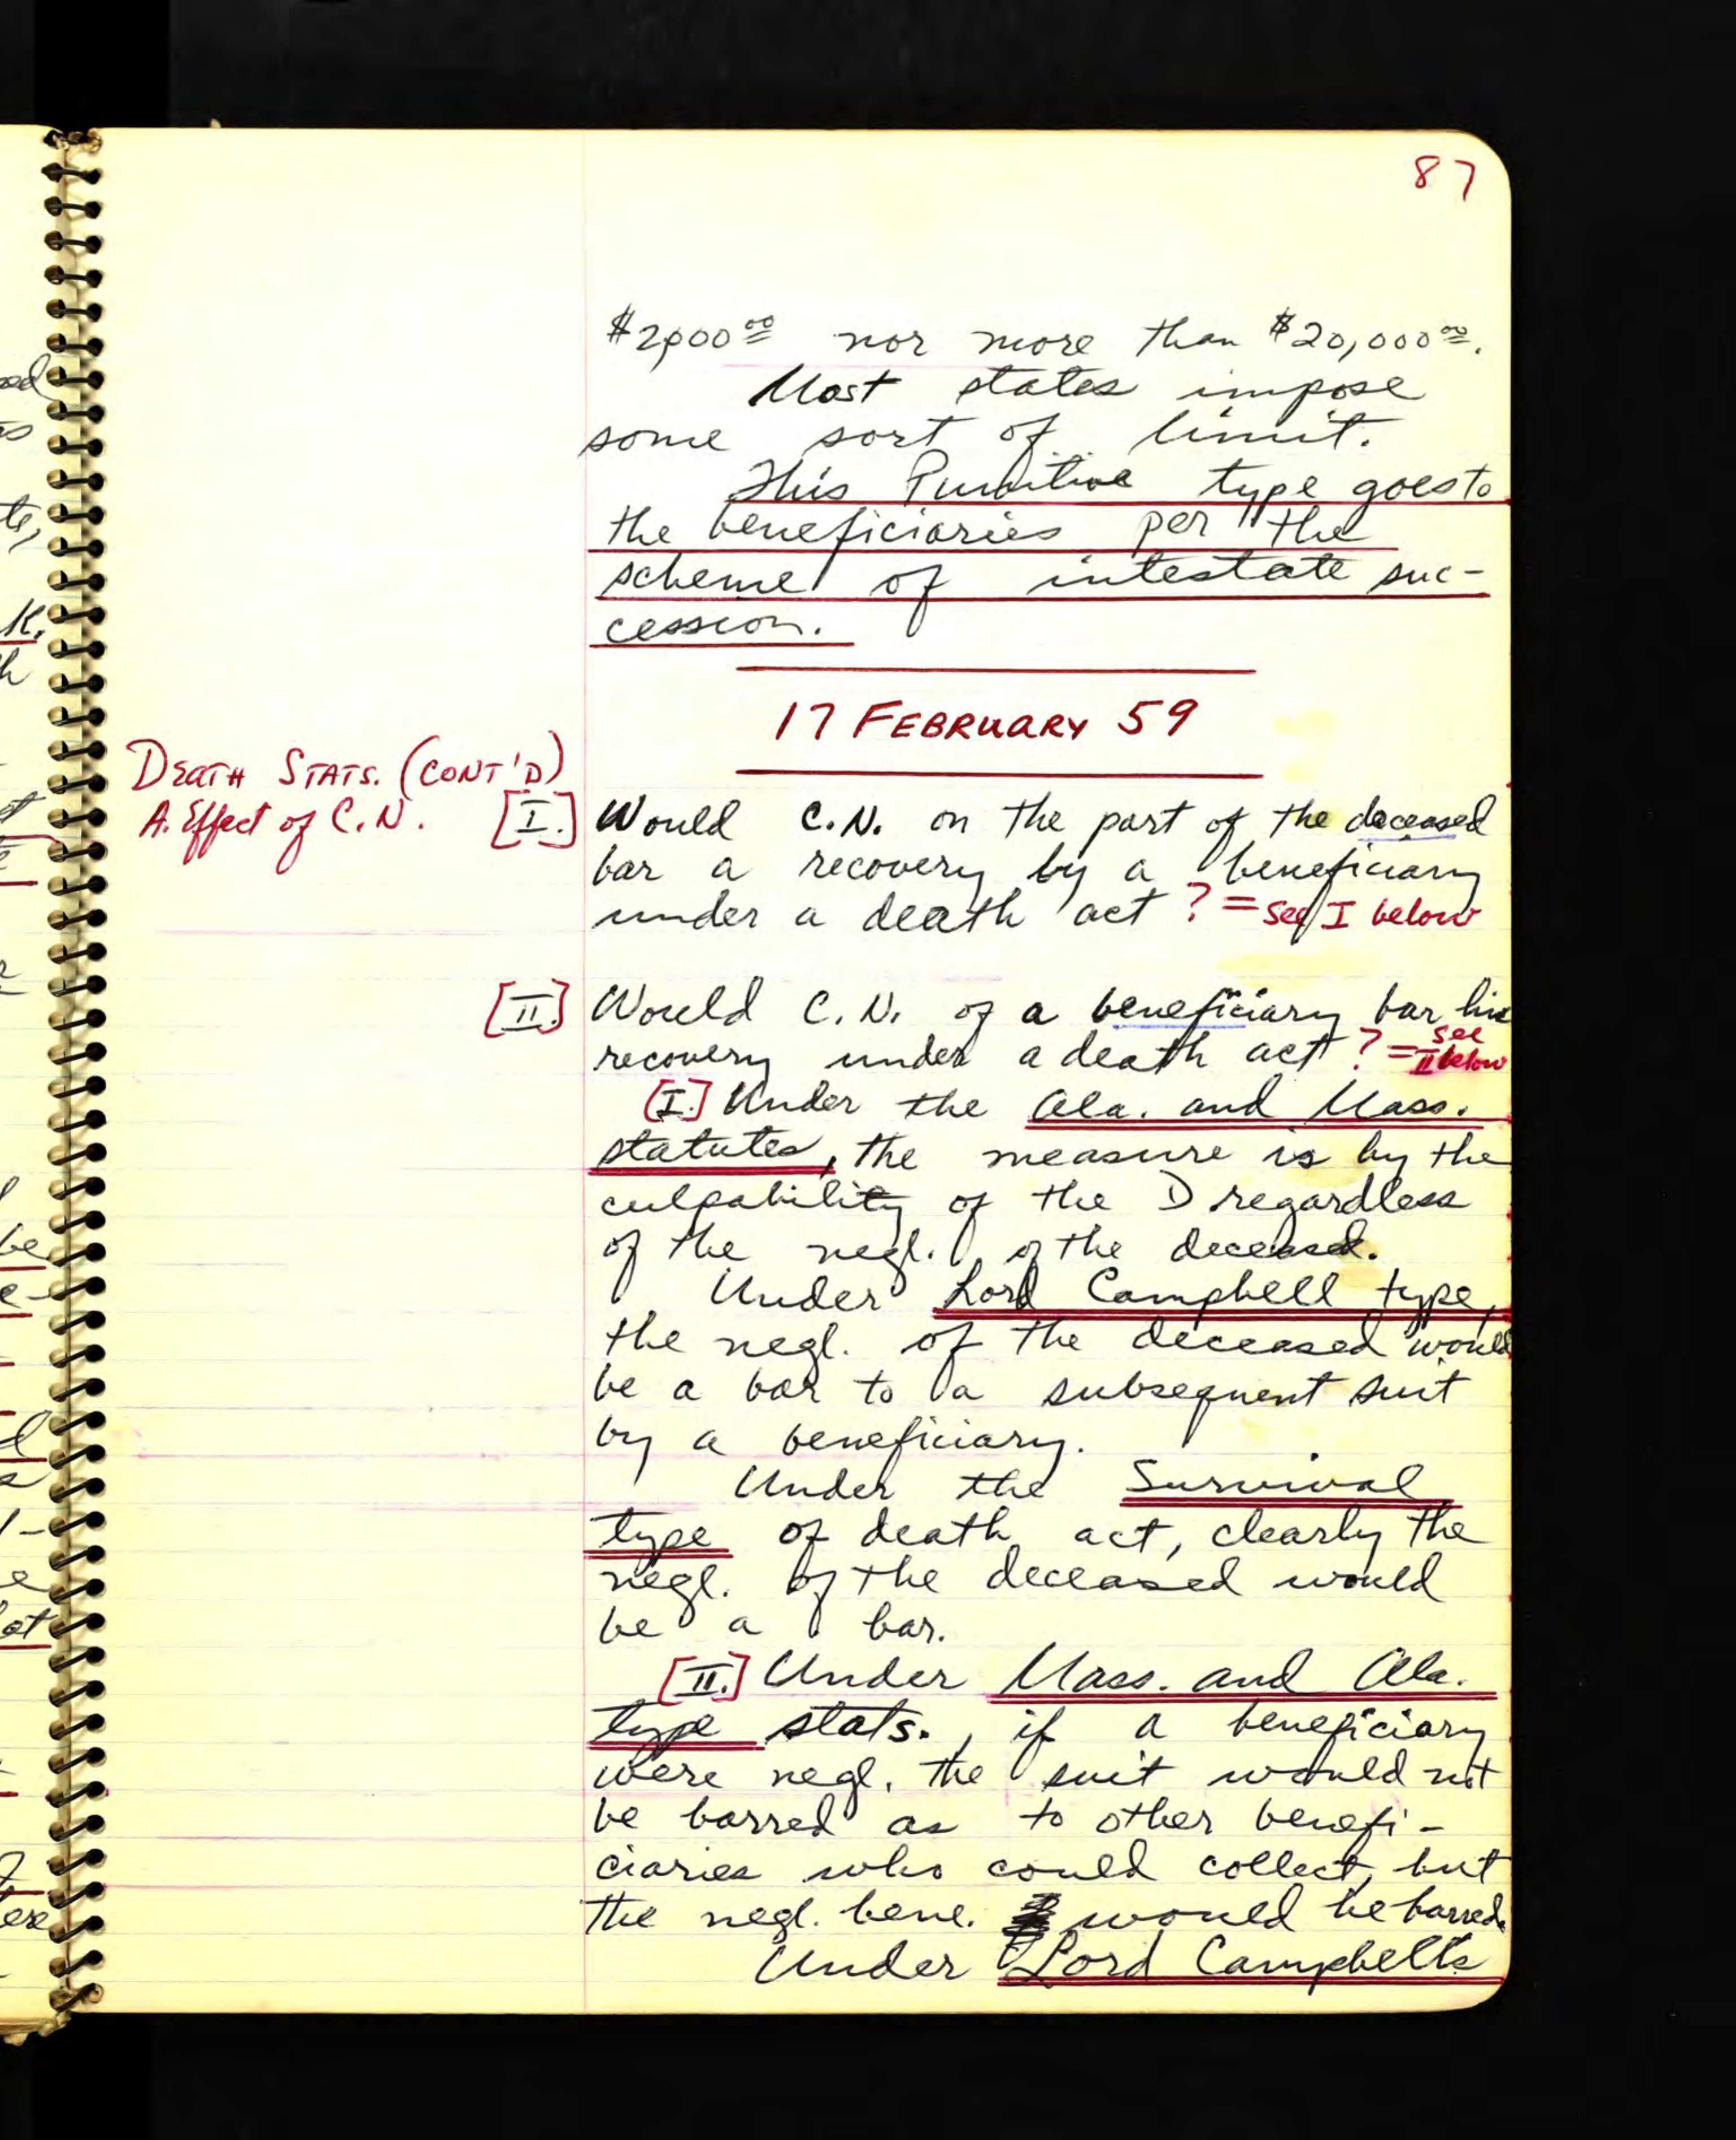 87
$2,000⁰⁰ nor more than $20,000⁰⁰.
Most states impose
some sort of limit.
This Punitive type goes to
the beneficiaries per the
scheme of intestate suc-
cession.
17 FEBRUARY 59
DEATH STATS. (CONT'D)
A. Effect of C.N.
[I.] Would C.N. on the part of the deceased
bar a recovery by a beneficiary
under a death act? = see I below
[II.] Would C.N. of a beneficiary bar his
recovery under a death act? = see
II below
[I.] Under the Ala. and Mass.
statutes, the measure is by the
culpability of the D regardless
of the negl. of the deceased.
Under Lord Campbell type,
the negl. of the deceased would
be a bar to a subsequent suit
by a beneficiary.
Under the Survival
type of death act, clearly the
negl. of the deceased would
be a bar.
[II.] Under Mass. and Ala.
type stats., if a beneficiary
were negl. the suit would not
be barred as to other benefi-
ciaries who could collect, but
the negl. bene. would be barred.
Under Lord Campbell's